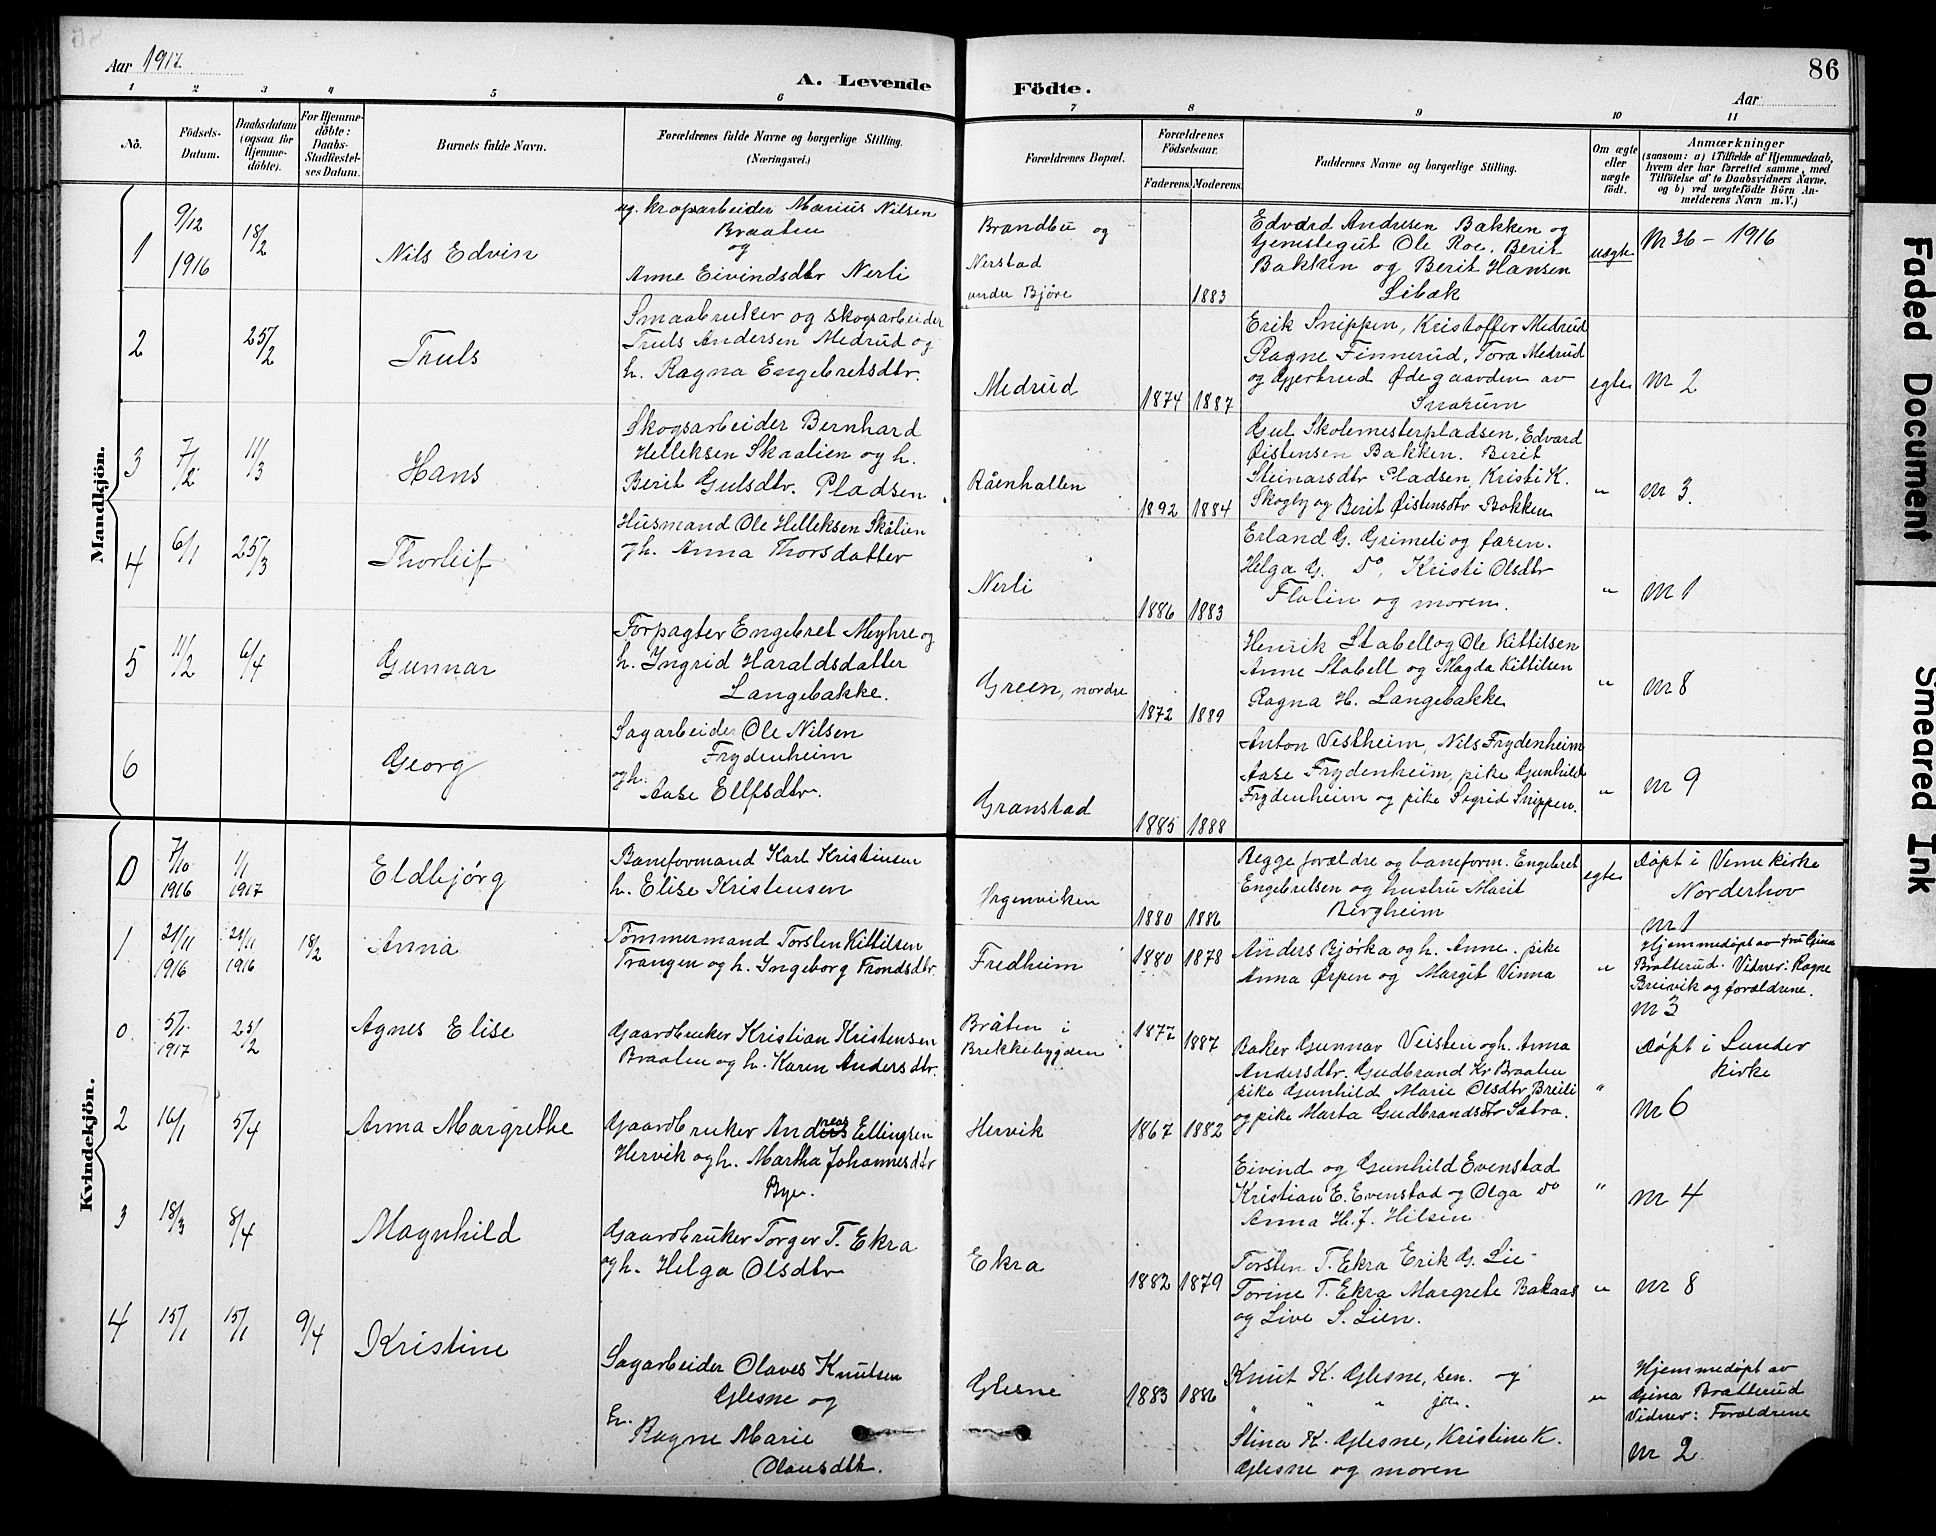 Aar 1917
A. Levende Födte.
Aar
86
1 2 3 4 5 6 7 8 9 10 11
No.
Födsels-
Datum.
Daabsdatum
(ogsaa for
Hjemme-
döbte).
For Hjemme-
döbte:
Daabs-
Stadfæstel-
ses Datum.
Barnets fulde Navn.
Forældrenes fulde Navne og borgerlige Stilling.
(Næringsvei.)
Forældrenes Bopæl.
Forældrenes
Födselsaar.
Faderens. Moderens.
Faddernes Navne og borgerlige Stilling.
Om ægte
eller
uægte
födt.
Anmærkninger
(saasom: a) i Tilfælde af Hjemmedaab,
hvem der har forrettet samme, med
Tilföielse af to Daabsvidners Navne,
og b) ved uægtefödte Börn An-
melderens Navn m. V.)
Mandkjön.
1
9/12
1916
18/2
Nils Edvin
ug. kropsarbeider Marius Nilsen
Braaten
og
Anne Eivindsdtr Nerli
Brandbu og
Nerstad
under Björe
1883
Edvard Andresen Bakken og
Ole Roe. Berit
Bakken og Berit Hansen
Libæk
uægte
Nr 36 - 1916
2
25/2
Truls
Smaabruker og skogsarbeider
Truls Andersen Medrud og
h. Ragna Engebretsdtr.
Medrud
1874 1887
Erik Snippen, Kristoffer Medrud
Ragne Finnerud, Tora Medrud
og Gjertrud Ødegaarden av
Snarum
egte
Nr 2
3
7/2
11/3
Hans
Skogsarbeider Bernhard
Helleksen Skaalien og h.
Berit Gulsdtr. Pladsen
Råenhallen
1892 1884
Gul Skolemesterpladsen, Edvard
Øistensen Bakken. Berit
Steinarsdtr Pladsen, Kristi K.
Skogly og Berit Øistensdtr Bakken
"
Nr 3.
4
6/1
25/3
Thorleif
Husmand Ole Helleksen Skålien
og h. Anna Thorsdatter
Nerli
1886 1883
Erland G. Grimeli og faren.
Helga G. do, Kristi Olsdtr
Flatin og moren.
"
Nr 1
5
11/2
6/4
Gunnar
Forpagter Engebret Myhre og
h. Ingrid Haraldsdatter
Langebakke.
Green, nordre
1872 1889
Henrik Stabell og Ole Kittilsen
Anne Stabell og Magda Kittilsen
Ragna H. Langebakke
"
Nr 8
6
Georg
Sagarbeider Ole Nilsen
Frydenheim
og h.
Aase Ellfsdtr.
Granstad
1885 1888
Anton Vestheim, Nils Frydenheim
Aase Frydenheim, pike Gunhild
Frydenheim og pike Sigrid Snippen.
"
Nr 9
Kvindekjön.
0
7/10
1916
1/1
1917
Eldbjörg
Baneformand Karl Kristensen
h. Elise Kristensen
1880 1886
Begge forældre og baneform. Engebret
Engebretsen og hustru Marit
Bergheim
egte
Döpt i Veme kirke
Norderhov
Nr 1
1
21/11
1916
21/11
1916
18/2
Anna
Tömmermand Torsten Kittilsen
Trangen og h. Ingeborg Trondsdtr.
Fredheim
1880 1878
Anders Bjørka og h. Anne. pike
Anna Ørpen og Margit Vinna
"
Hjemmedøpt av fru Gina
Bratterud. Vidner: Ragne
Breivik og forældrene.
Nr 3
0.
5/1
1917
25/2
Agnes Elise
Gaardbruker Kristian Kristensen
Braaten og h. Karen Andersdtr.
Bråten i
Brekkebygden
1872 1887
Baker Gunnar Veisten og h. Anna
Andersdtr. Gudbrand Kr Braaten
pike Gunhild Marie Olsdtr Breili
og pike Marta Gudbrandsdtr Sætra.
"
Döpt i Lunder
kirke
Nr 6
2
16/1
5/4
Anna Margrethe
Gaardbruker Andreas Ellingsen
Hervik og h. Martha Johannesdtr
Bye.
Hervik
1867 1882
Eivind og Gunhild Evenstad
Kristian E. Evenstad og Olga do
Anna H. J. Hilsen
"
Nr 4
3
18/3
8/4
Magnhild
Gaardbruker Torger T. Ekra
og h. Helga Olsdtr
Ekra
1882 1879
Torsten T. Ekra Erik G. Lie
Torine T. Ekra Margrete Bakaas
og Live S. Lien.
"
Nr 8
4
15/1
15/1
9/4
Kristine
Sagarbeider Olaves Knutsen
Glesne og
h. Ragne Marie
Olausdtr.
Glesne
1883 1886
Knut K. Glesne, sen. og
" " " jr.
Stina K. Glesne, Kristine K.
Glesne og moren
"
Hjemmedøpt av
Gina Bratterud
Vidner: Forældrene
Nr 2
Faded Document
Smeared Ink